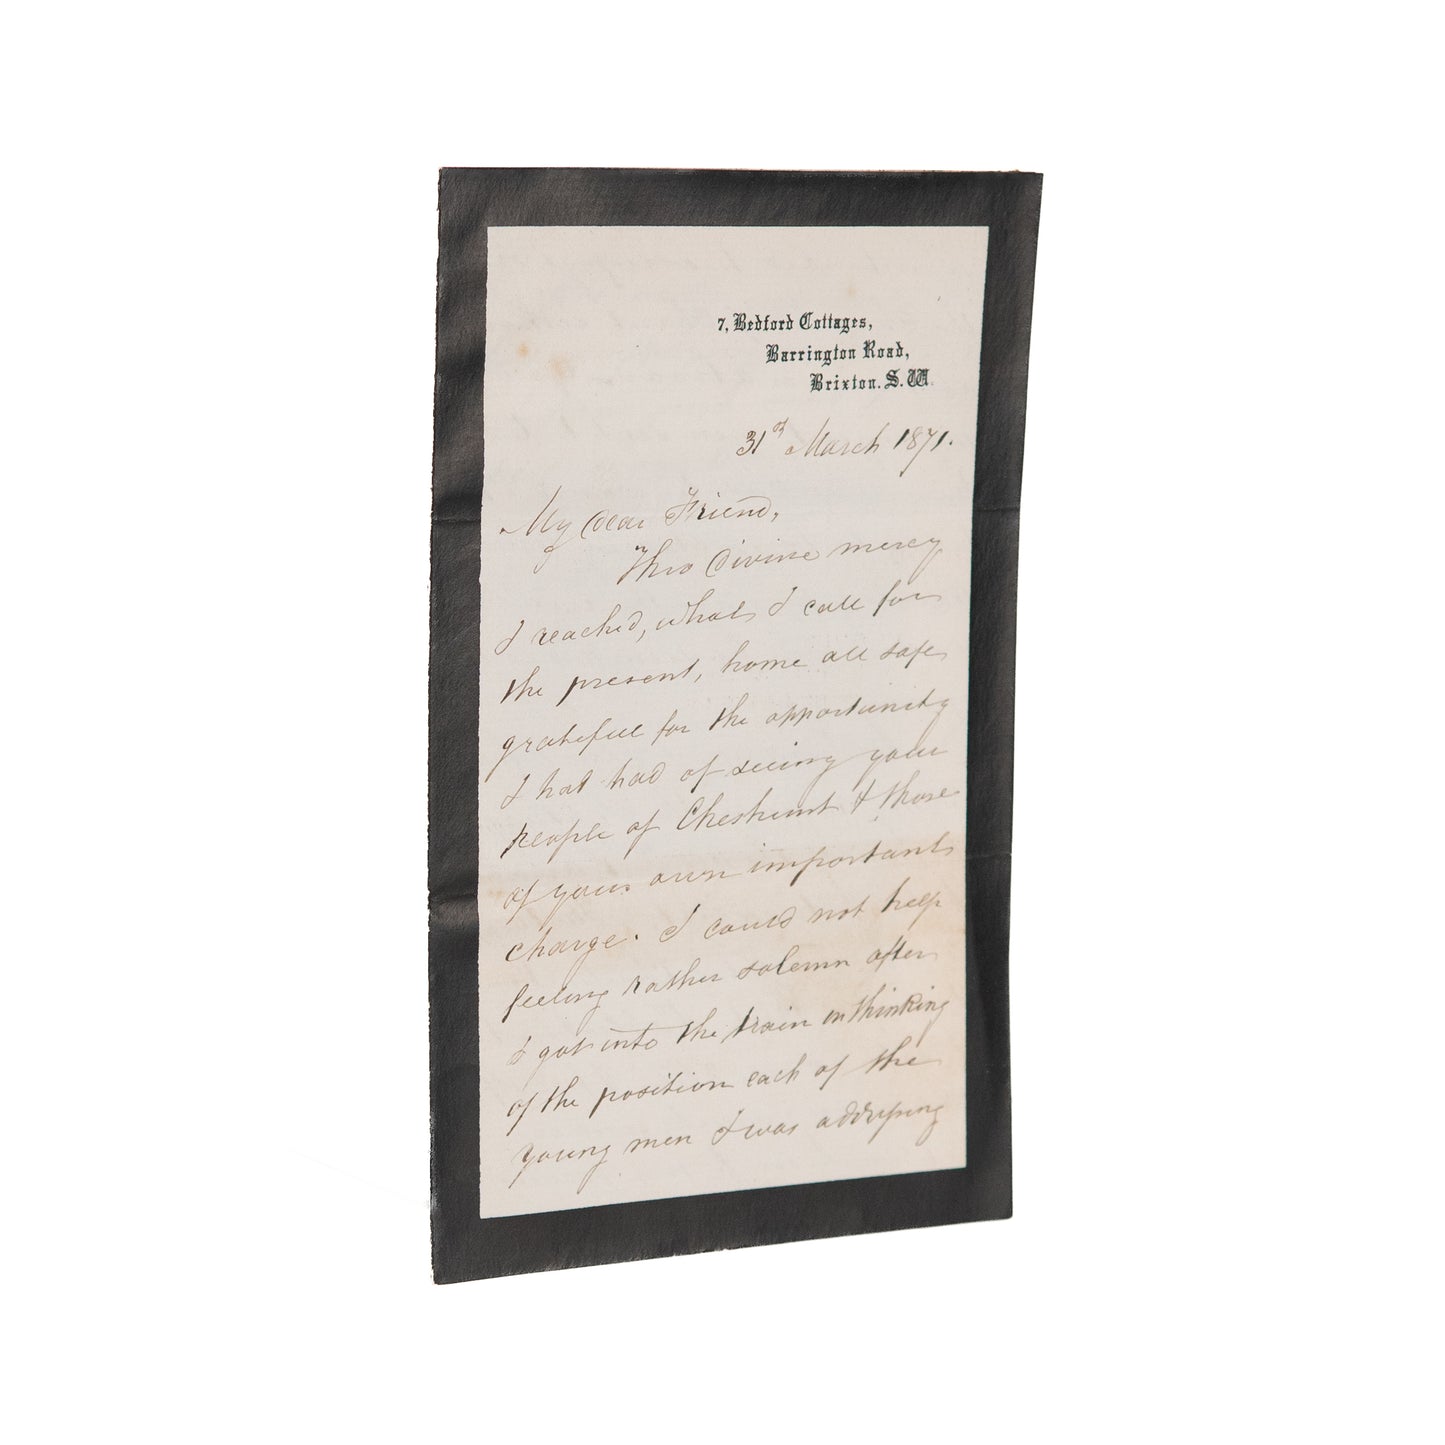 7, Bedford Cottages,
Barrington Road,
Brixton. S. W.
31st March 1871.
My dear Friend,
Thro divine mercy
I reached, what I call for
the present, home all safe
grateful for the opportunity
I had had of seeing your
people of Cheshunt & those
of your own important
charge. I could not help
feeling rather solemn after
I got into the train in thinking
of the position each of the
young men I was addressing